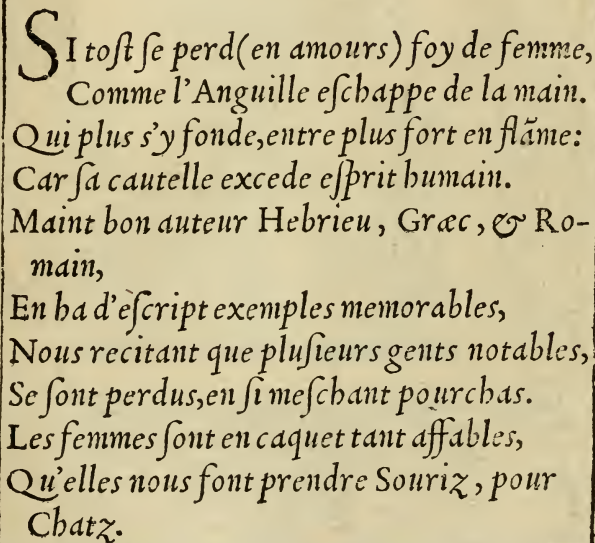 SI toſt ſe perd(en amours) foy de femme,
Comme l'Anguille eſchappe de la main.
Qui plus s'y fonde,entre plus fort en flãme:
Car ſa cautelle excede eſprit humain.
Maint bon auteur Hebrieu, Græc, & Ro-
main,
En ha d'eſcript exemples memorables,
Nous recitant que pluſieurs gents notables,
Se ſont perdus,en ſi meſchant pourchas.
Les femmes ſont en caquet tant affables,
Qu'elles nous font prendre Souriz, pour
Chatz.